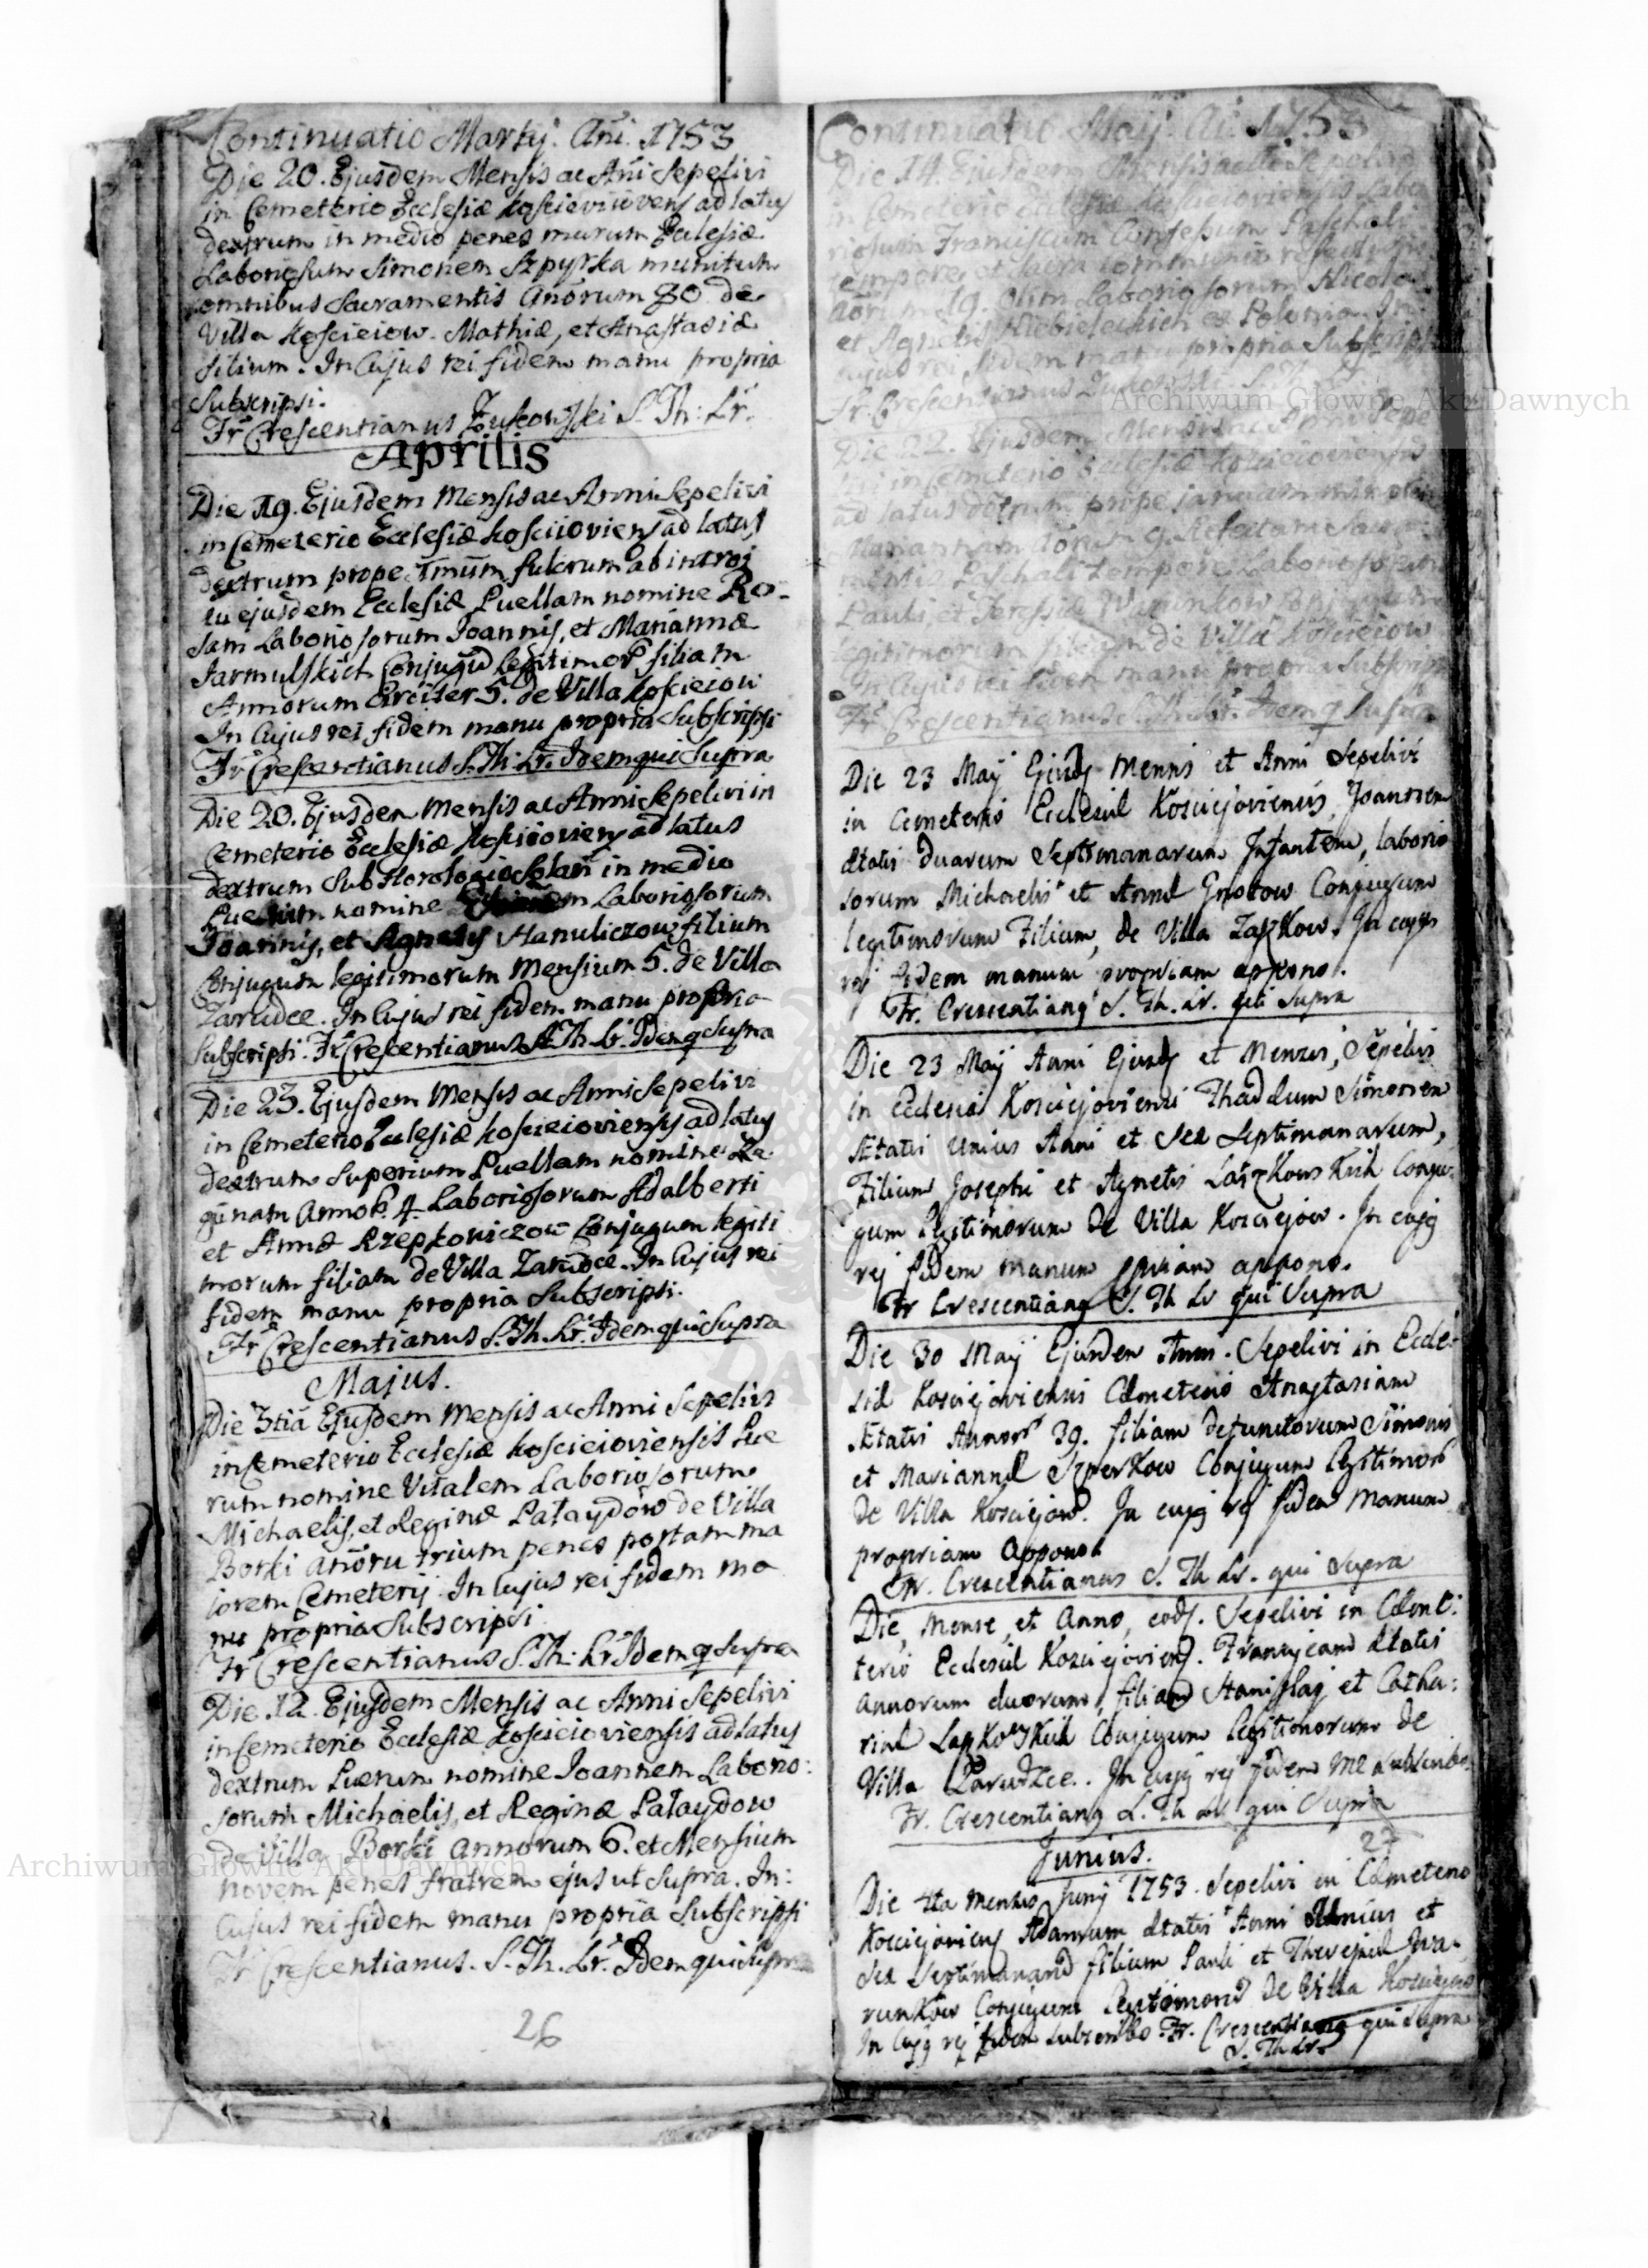 Continuatio Martij. Añi. 1753
Die 20. Ejusdem Mensis ac Añi Sepelivi
in Cemeterio Ecclesiæ Kościeviovens ad latus
dextrum in medio penes murum Ecclesiæ
Laboriosum Simonem Szpyrka munitum
omnibus Sacramentis Anorum 80 de
Villa Kościeiow. Mathiæ, et Anastasiæ
filium. In Cujus rei fidem manu propria
Subscripsi.
Fr Crescentianus Żukowski S. Th: Lr.
Aprilis
Die 19. Ejusdem Mensis ac Anni Sepelivi
in Cemeterio Ecclesiæ Kosciioviens ad latus
dextrum prope Imum fulcrum ab introi
tu ejusdem Ecclesiæ Puellam nomine Ro-
sam Laboriosorum Joannis, et Mariannæ
Jarmulskich Conjugu legitimor filiam
Annorum Circiter 5. de Villa Kościeiow
In Cujus rei fidem manu propria Subscripsi
Fr Crescentianus S. Th: Lr. Idem qui Supra
Die 20. Ejusdem Mensis ac Anni Sepelivi in
Cemeterio Ecclesiæ Kosciioviens ad latus
dextrum Sub Horologio Solari in medio
nomine Laboriosorum
Joannis, et Agnetis Hanuliczow filium
Conjugum legitimorum Mensium 5. de Villa
Zarudce. In Cujus rei fidem manu propria
Subscripsi. Fr Crescentianus S. Th. Lr. Idem q Supra
Die 23. Ejusdem Mensis ac Anni Sepelivi
in Cemeterio Ecclesiæ Kościeioviensis ad latus
dextrum Superium Puellam nomine Re
ginam Annor. 4. Laboriosorum Adalberti
et Annæ Rzepkowiczow Conjugum legiti
morum filiam de Villa Zarudce. In Cujus rei
fidem manu propria Subscripsi.
Fr Crescentianus S. Th. Lr. Idem qui Supra
Majus.
Die 3tia Ejusdem Mensis ac Anni Sepelivi
in Cemeterio Ecclesiæ Kościeioviensis Pue
rum nomine Vitalem Laboriosorum
Michaelis, et Reginæ Pataydow de Villa
Borki añoru trium penes portam ma
iorem Cemeterij. In Cujus rei fidem ma
nu propria Subscripsi
Fr Crescentianus S. Th: Lr Idem q Supra
Die 12. Ejusdem Mensis ac Anni Sepelivi
in Cemeterio Ecclesiæ Kościeioviensis ad latus
dextrum Puerum nomine Joannem Laborio:
sorum Michaelis, et Reginæ Pataydow
de Villa Borki annorum 6. et Mensium
novem penes fratrem ejus ut Supra. In:
Cujus rei fidem manu propria Subscripsi
Fr Crescentianus. S. Th. Lr. Idem qui Supra
26
Continuatio Maij. Ai 1753
Die 14. Ejusdem Mensis ac Sepelivi
in Cemeterio Ecclesiæ Labo
riosum Franciscum Confessum Paschali
tempore, et
19. olim Laboriosorum Nicolai
et Agnetis ex Polonia. In
cujus rei fidem manu propria Subscripsi
Fr. Crescentianus Żukowski S. Th.
Die 22. Ejusdem Mensis ac Anni Sepe
livi in Cemeterio Ecclesiæ Kościeioviensis
ad latus dextrum prope januam
Mariannam 9. Refectam Sacra
mentis Paschali tempore Laboriosorum
Pauli, et Teressiæ Conjugum
legitimorum filiam de Villa Kościeiow
In Cujus rei fidem manu propria Subscripsi
Fr Crescentianus S. Th. Lr. Idem q Supra
Die 23 Maij Ejusd Mensis et Anni Sepelivi
in Cemeterio Ecclesiæ Kosciejoviensis, Joannem
ætatis duarum Septimanarum Infantem, laborio
sorum Michaelis et Annæ Gnotow Conjugum
legitimorum Filium, de Villa Zaszkow. In cujus
rej fidem manum propriam appono.
Fr. Crescentiang S. Th. Lr. qui Supra
Die 23 Maij Anni Ejusd et Mensis, Sepelivi
in Ecclesia Kosciejoviensi Thadæum Simonem
Ætatis Unius Anni et Sex Septimanarum,
Filium Josephi et Agnetis Laszkows Kich Conju-
gum legitimorum de Villa Kosciejow. In cujg
rej fidem manum ppriam appono.
Fr Crescentiang S. Th Lr qui Supra
Die 30 Maij Ejusdem Anni. Sepelivi in Eccle-
siæ Kosciejoviensis Cæmeterio Anastasiam
Ætatis Annor 39. filiam defunctorum Simonis
et Mariannæ Szperkow Conjugum legitimor
de Villa Kosciejow. In cujg rej fidem Manum
propriam Appono.
Fr. Crescentianus S. Th Lr. qui Supra
Die, Mense, et Anno, eod. Sepelivi in Cæmet:
terio Ecclesiæ Kosciejoviens. Franciscam ætatis
annorum duorum, filiam Stanislaj et Catha:
rinæ LaszkowsKich Conjugum legitimorum de
Villa Zarudzce. In cujg rej fidem me subscribo
Fr. Crescentiang S. Th Lr qui Supra
27
Junius.
Die 4ta Mensis Junij 1753. Sepelivi in Cæmeterio
Kosciejoviens Adamum ætatis Anni Unius et
Sex Septimanaru filium Pauli et Theresiæ Iwa-
runkow Conjugum Legitimoru de Villa Kosciejow
In Cujg rej fidem subscribo. Fr. Crescentiang qui Supra
S. Th Lr.
Archiwum Główne Akt Dawnych
Archiwum Główne Akt Dawnych